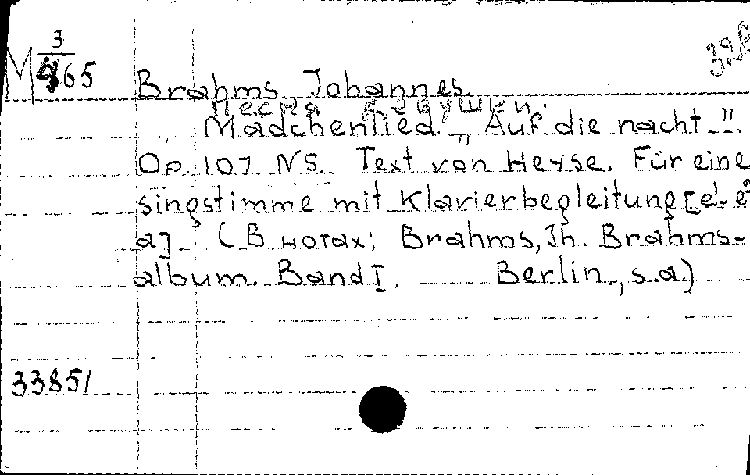 M 3/465
398
Brahms, Johannes.
Песня девушки.
Mädchenlied. „Auf die nacht..."
Op. 107 N5. Text von Heyse. Für eine
singstimme mit Klavierbegleitung [e'-e²
a] (В нотах: Brahms, Jh. Brahms-
album. Band I. Berlin, s.a)
33851